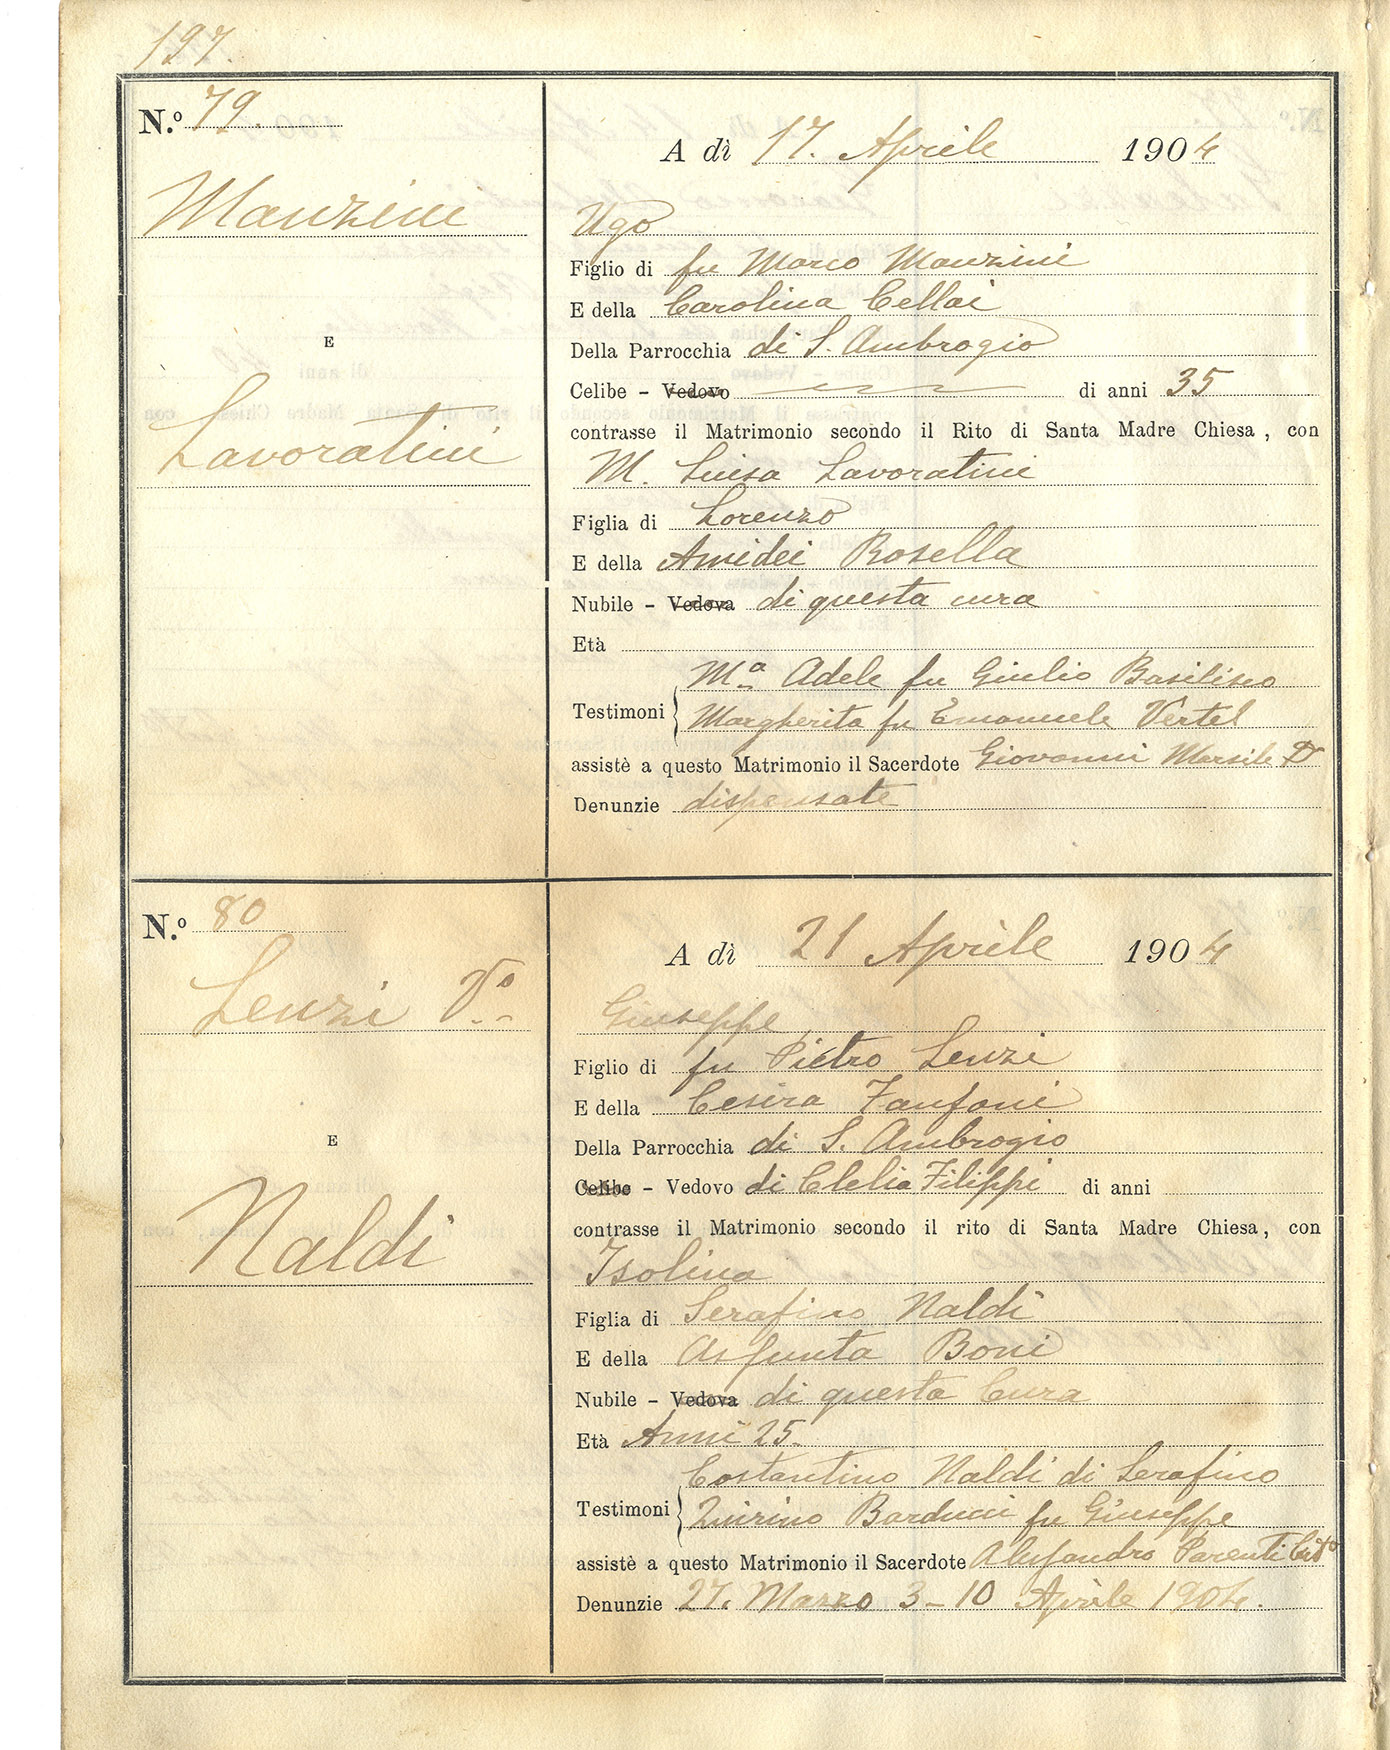 197.
N.º 79.
A dì 17. Aprile 1904
Manzini
Ugo
Figlio di fu Marco Manzini
E della Carolina Cellai
Della Parrocchia di S. Ambrogio
E
Celibe - Vedovo di anni 35
contrasse il Matrimonio secondo il Rito di Santa Madre Chiesa, con
Lavoratini
M. Luisa Lavoratini
Figlia di Lorenzo
E della Amidei Rosella
Nubile - Vedova di questa cura
Età
Mª Adele fu Giulio Basilisco
Testimoni Margherita fu Emanuele Vertel
assistè a questo Matrimonio il Sacerdote Giovanni Marsili
Denunzie dispensate
N.º 80
A dì 21 Aprile 1904
Lenzi Vº
Giuseppe
Figlio di fu Pietro Lenzi
E della Cesira Fanfoni
Della Parrocchia di S. Ambrogio
E
Celibe - Vedovo di Clelia Filippi di anni
contrasse il Matrimonio secondo il rito di Santa Madre Chiesa, con
Naldi
Isolina
Figlia di Serafino Naldi
E della Assunta Boni
Nubile - Vedova di questa Cura
Età Anni 25.
Costantino Naldi di Serafino
Testimoni Quirino Barducci fu Giuseppe
assistè a questo Matrimonio il Sacerdote Alessandro Parenti
Denunzie 27. Marzo 3-10 Aprile 1904.